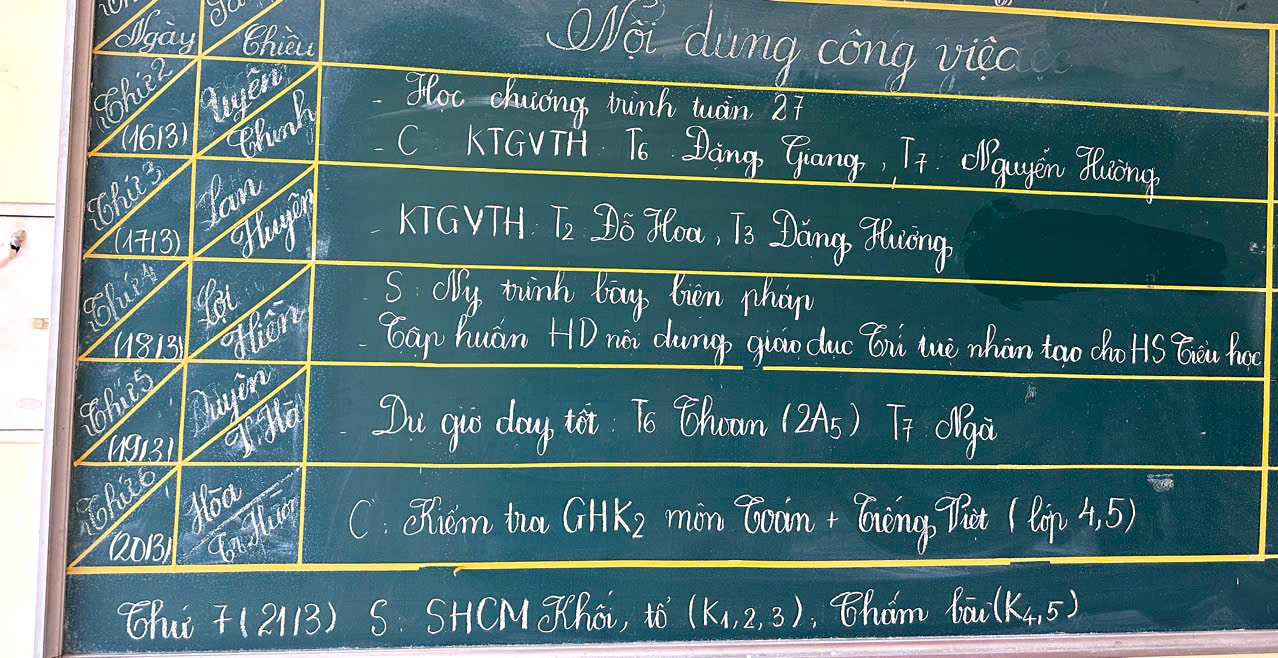 Ngày Chiều Nội dung công việc
Thứ 2 (16/3) Uyên Chinh
- Học chương trình tuần 27
- C: KTGVTH: T6 Đặng Giang, T7: Nguyễn Hường
Thứ 3 (17/3) Lan Huyên
- KTGVTH: T2 Đỗ Hoa, T3 Đặng Hường
Thứ 4 (18/3) Lợi Hiền
- S: Ny trình bày biện pháp
- Tập huấn HD nội dung giáo dục Trí tuệ nhân tạo cho HS Tiểu học
Thứ 5 (19/3) Duyên V.Hà
- Dự giờ dạy tốt: T6 Thoan (2A5) T7 Ngà
Thứ 6 (20/3) Hòa
C: Kiểm tra GHK2 môn Toán + Tiếng Việt (lớp 4,5)
Thứ 7 (21/3) S: SHCM Khối, tổ (K1,2,3), Chấm bài (K4,5)